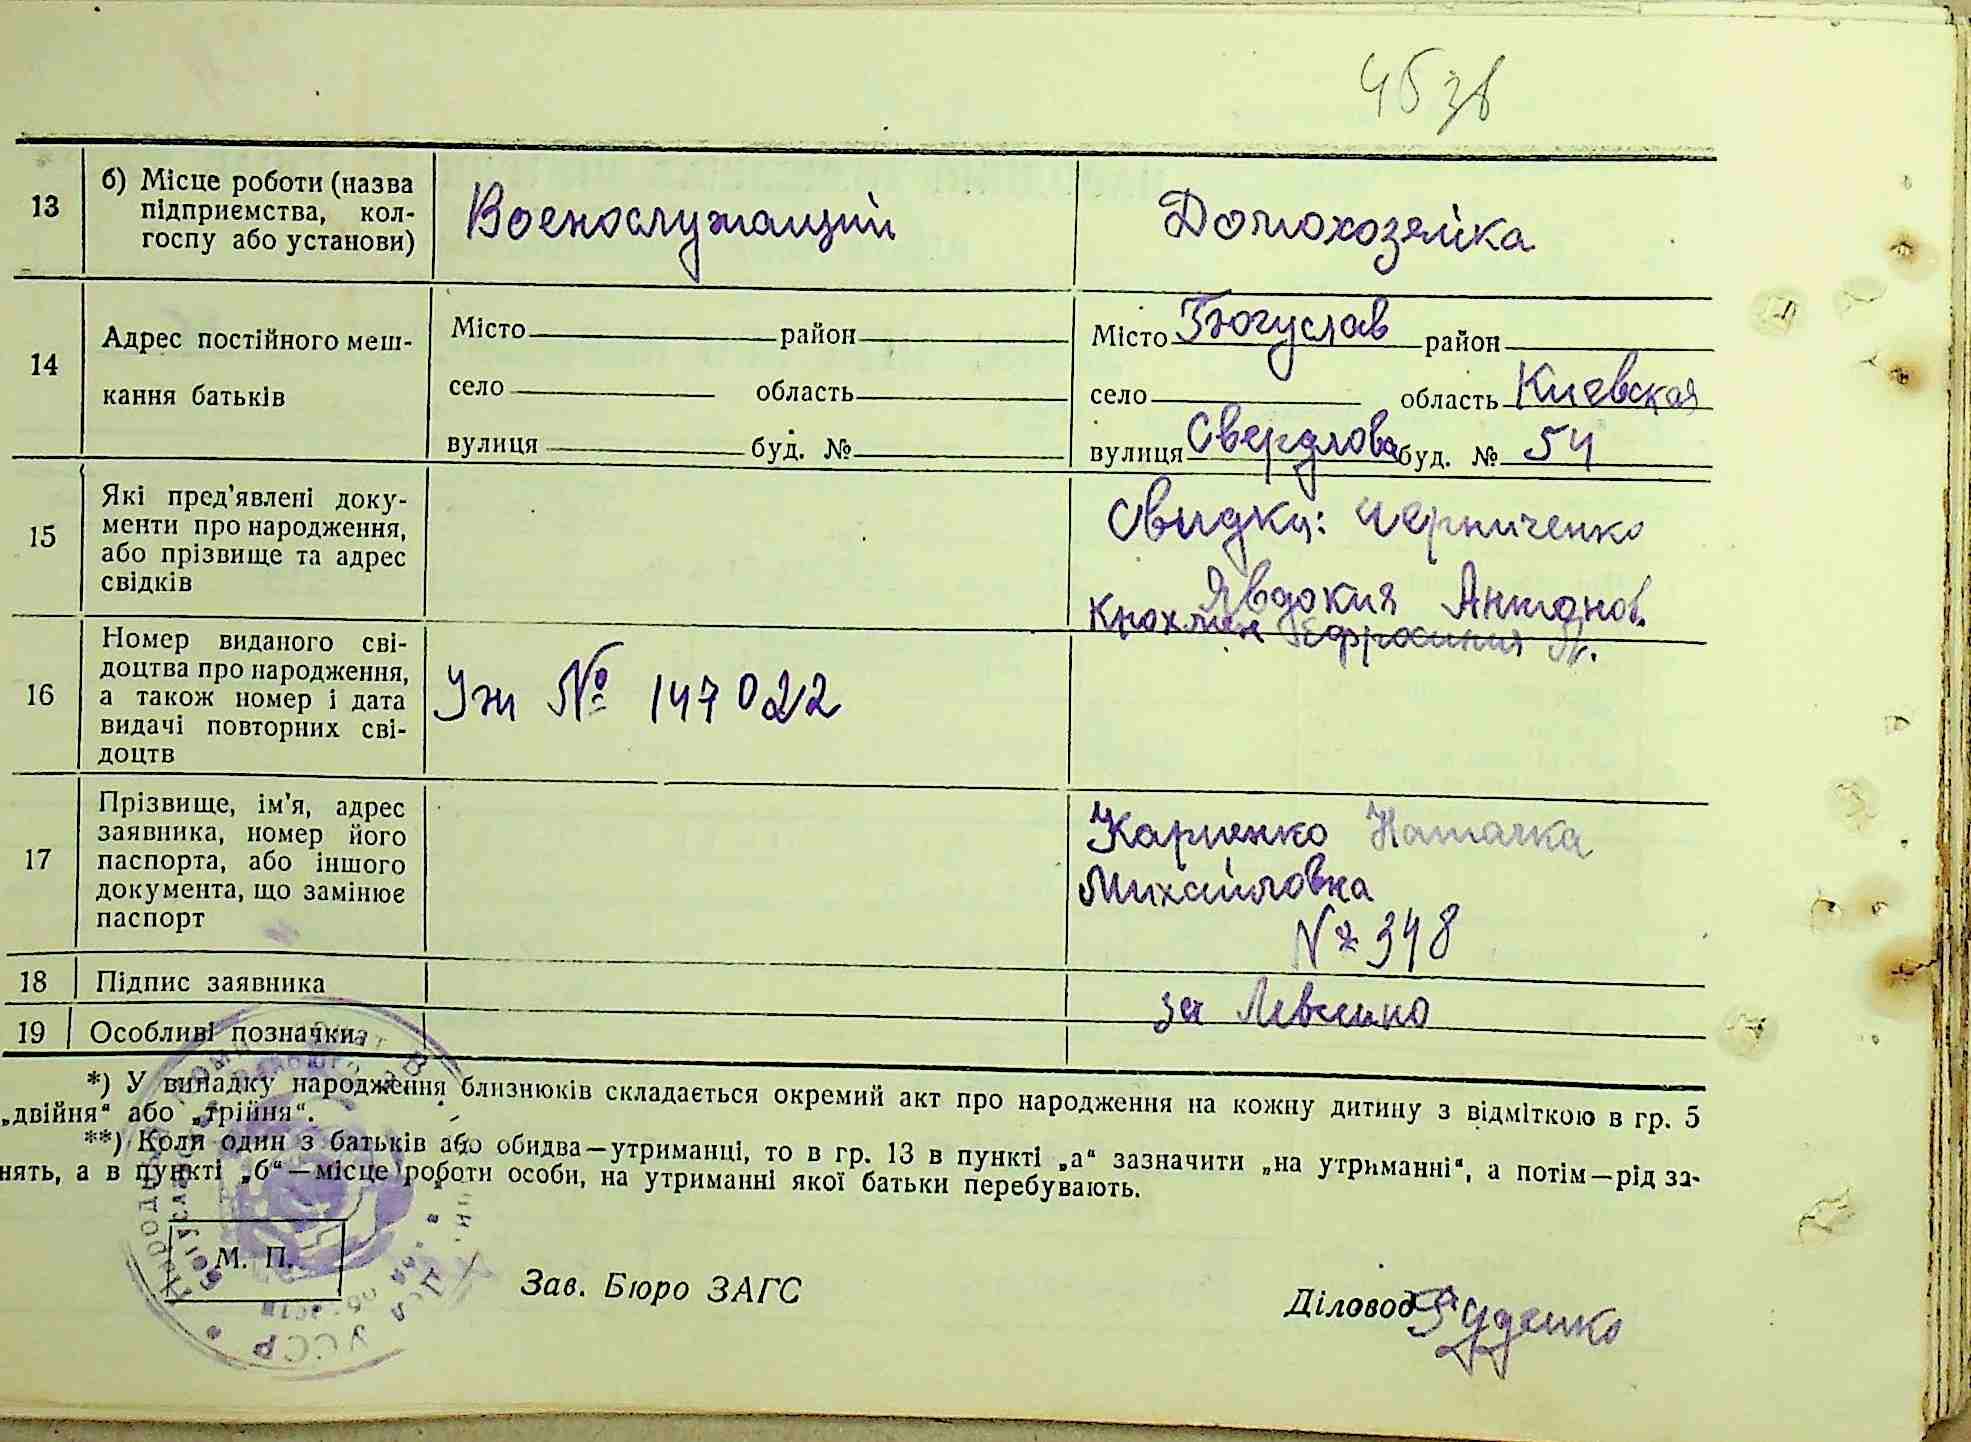 45 зв
13
б) Місце роботи (назва
підприємства, кол-
госпу або установи)
Военослужащий
Домохозяйка
14
Адрес постійного меш-
кання батьків
Місто район
село область
вулиця буд. №
Місто Богуслав район
село область Киевская
вулиця Свердлова буд. № 54
15
Які пред'явлені доку-
менти про народження,
або прізвище та адрес
свідків
Свидки: Черниченко
Явдокия Антонов.
Ефросиния
16
Номер виданого сві-
доцтва про народження,
а також номер і дата
видачі повторних сві-
доцтв
№ 147022
17
Прізвище, ім'я, адрес
заявника, номер його
паспорта, або іншого
документа, що замінює
паспорт
Карпенко Наталка
Михайловна
№ 348
18
Підпис заявника
за
19
Особливі позначки
*) У випадку народження близнюків складається окремий акт про народження на кожну дитину з відміткою в гр. 5
„двійня“ або „трійня“.
**) Коли один з батьків або обидва—утриманці, то в гр. 13 в пункті „а“ зазначити „на утриманні“, а потім—рід за-
нять, а в пункті „б“—місце роботи особи, на утриманні якої батьки перебувають.
М. П.
УССР
Зав. Бюро ЗАГС
Діловод Руденко